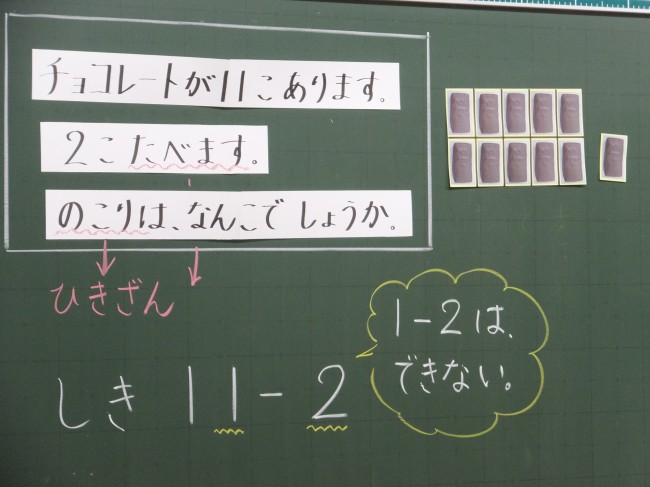 チョコレートが11こあります。
2こたべます。
のこりは、なんこでしょうか。
ひきざん
しき 11-2
1-2は、
できない。